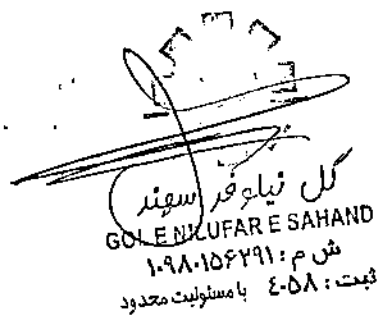 گل نیلوفر سهند
GOL E NILUFAR E SAHAND
ش م : ۱۰۹۸۰۱۵۶۲۹۱
ثبت : ٤٠٥٨ با مسئولیت محدود